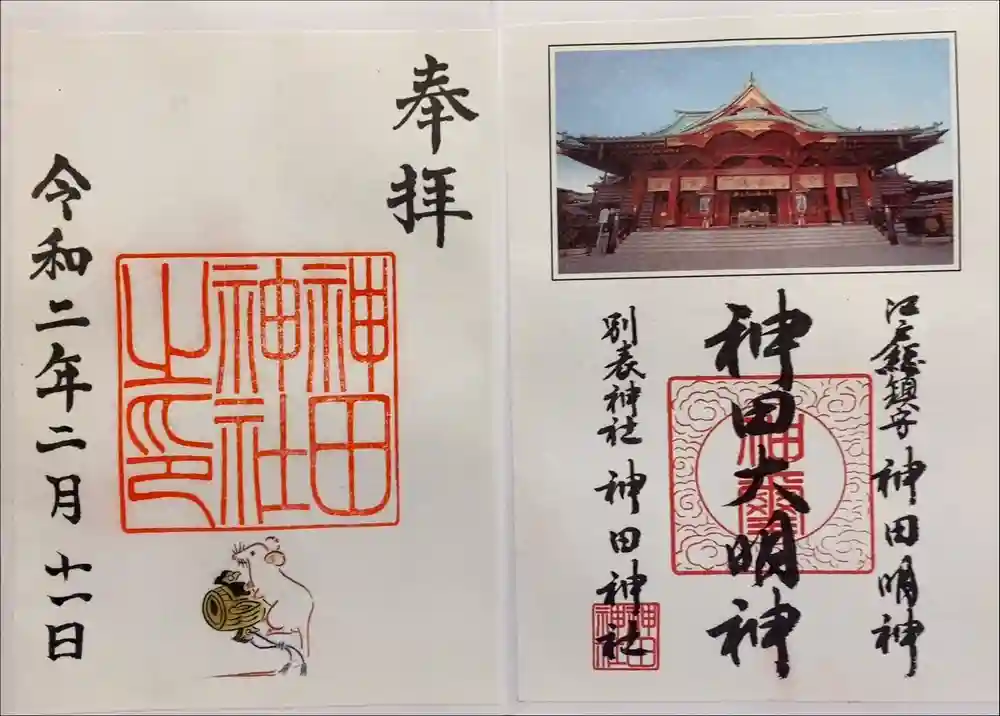 江戸総鎮守 神田明神
神田大明神
別表神社 神田神社
神田
神社
奉拝
神田
神社
之印
令和二年二月十一日